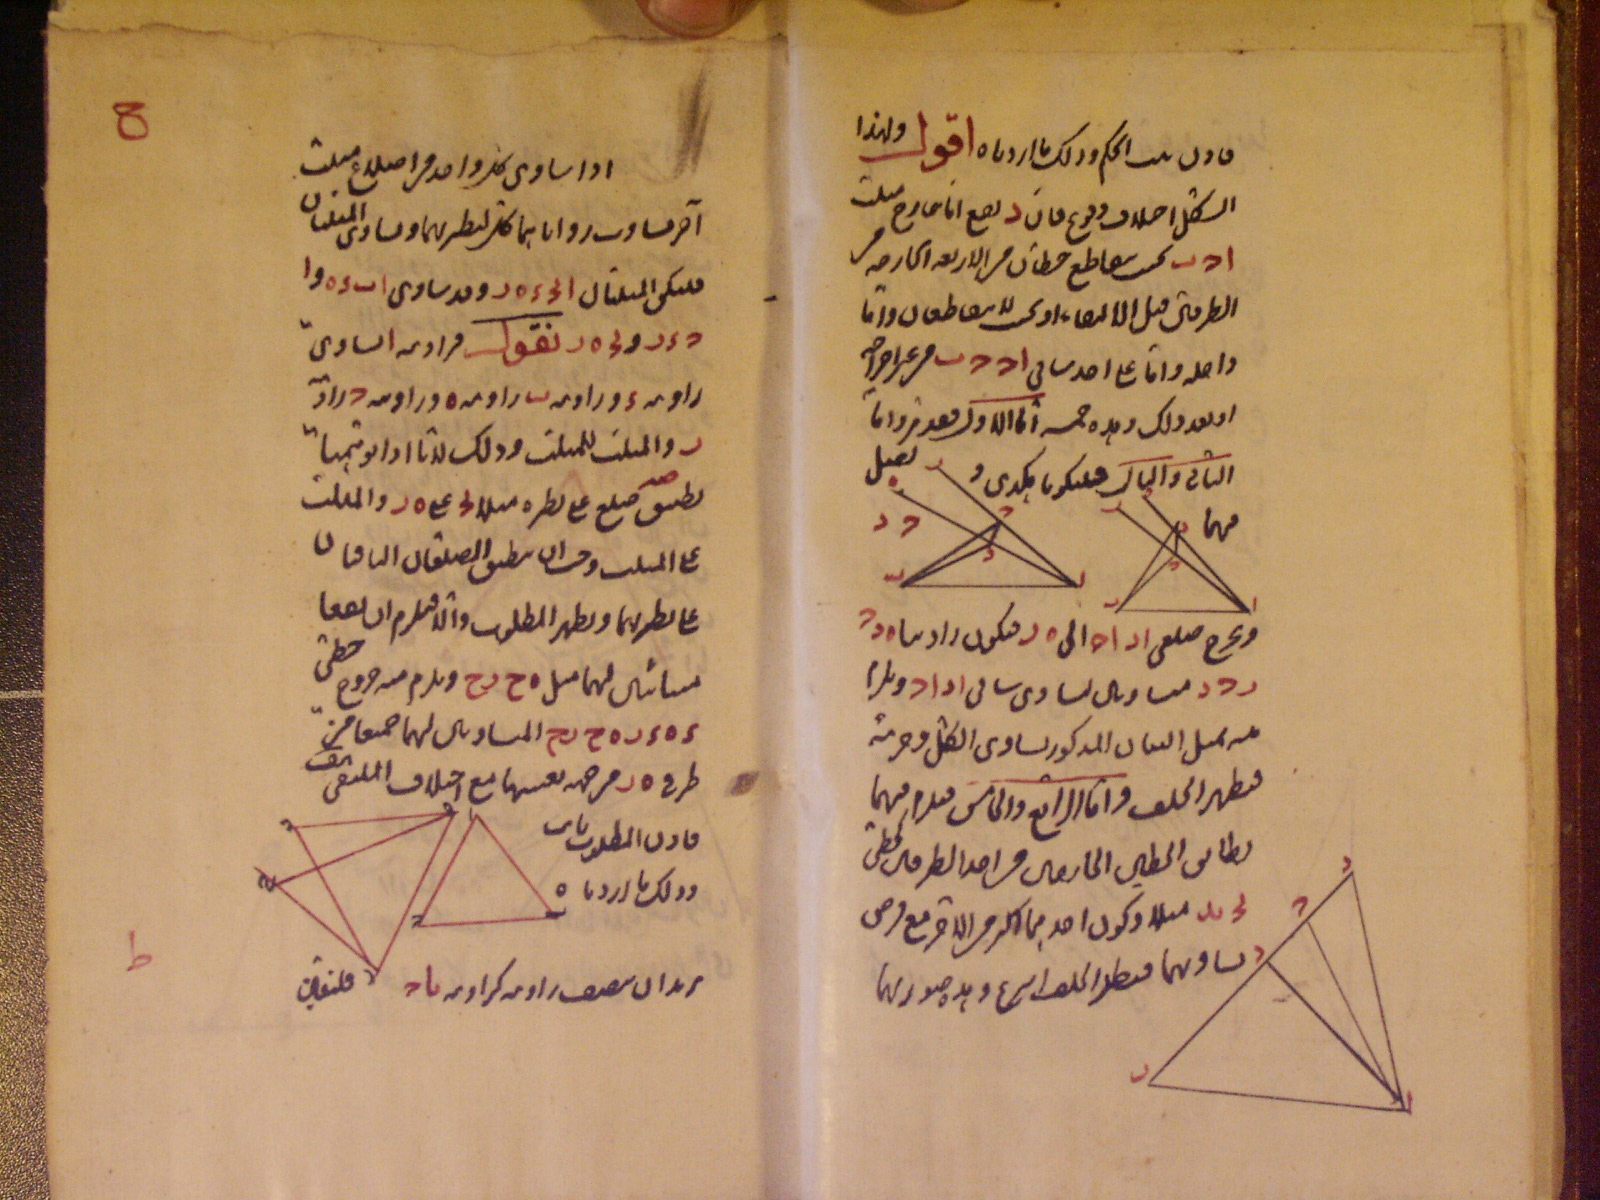 فاذن ثبت الحكم وذلك ما اردناه اقول ولهذا
الشكل اختلاف وقوع فان د يقع اما خارج مثلث
ا ح ب بحيث يتقاطع خطان من الاربعة الخارجة من
الطرفين قبل الالتقاء او بحيث لا يتقاطعان واما
داخله واما على احد ساقي ا ح ح ب من غير اخراجه
او بعد ذلك وهذه خمسة اما الاول فقد مر واما
الثاني والثالث فليكونا هكذى و نصل
ح د
فيهما
ونخرج ضلعي ا د ا ح الى ه ر فيكون زاويتا ه د ح
ر ح د متساويتان لتساوى ساقي ا د ا ح ويلزم
منه بمثل البيان المذكور تساوى الكل وجزئه
فيظهر الخلف واما الرابع والخامس فيلزم فيهما
تطابق الخطين الخارجين من احد الطرفين كخطي
ب ح ب د مثلا وكون احدهما اكثر من الاخر مع فرض
تساويهما فيظهر الخلف اسرع وهذه صورتهما
ح
اذا ساوى كل واحد من اضلاع مثلث
آخر تساوت زواياهما كل لنظيرتها وتساوى المثلثان
فليكن المثلثان ا ب ح ء ه ر وقد ساوى ا ب ء ه و ا
ح ء ر و ب ح ه ر نقول فزاوية ا تساوى
زاوية ء وزاوية ب زاوية ه وزاوية ح زاوية
ر والمثلث للمثلث وذلك لانا اذا توهمنا
تطبيق ضلع على نظيره مثلا ب ح على ه ر والمثلث
على المثلث وجب ان ينطبق الضلعان الباقيان
على نظيريهما ويظهر المطلوب والا فيلزم ان يقعا
متباينين لهما مثل ه ح ر ح ويلزم منه خروج خطي
ء ه ء ر ه ح ر ح المتساويان لهما جميعا من
طرفي ه ر من جهة بعينها مع اختلاف الملتقى هف
فاذن المطلوب ثابت
وذلك ما اردناه
ط
نريد ان ننصف زاوية كزاوية ب ا ح فلنعين